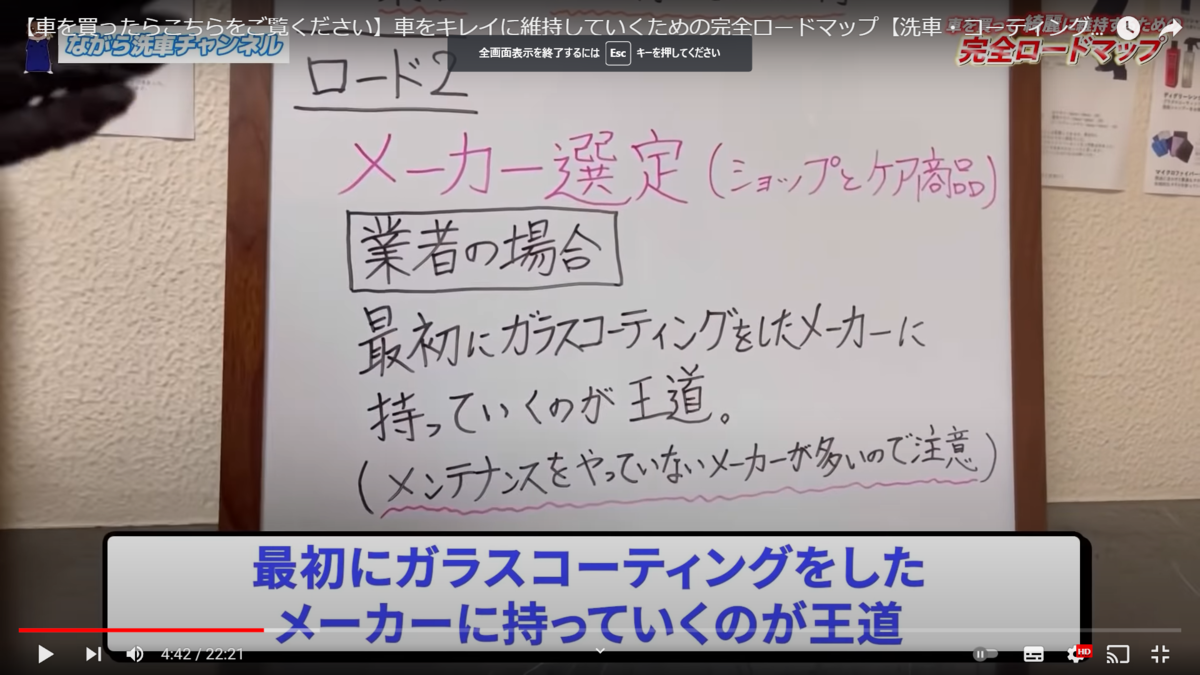 【車を買ったらこちらをご覧ください】車をキレイに維持していくための完全ロードマップ【洗車・コーティング...
ながら洗車チャンネル
全画面表示を終了するには Esc キーを押してください
完全ロードマップ
ロード2
メーカー選定(ショップとケア商品)
業者の場合
最初にガラスコーティングをしたメーカーに
持っていくのが王道。
(メンテナンスをやっていないメーカーが多いので注意)
最初にガラスコーティングをした
メーカーに持っていくのが王道
4:42 / 22:21
HD